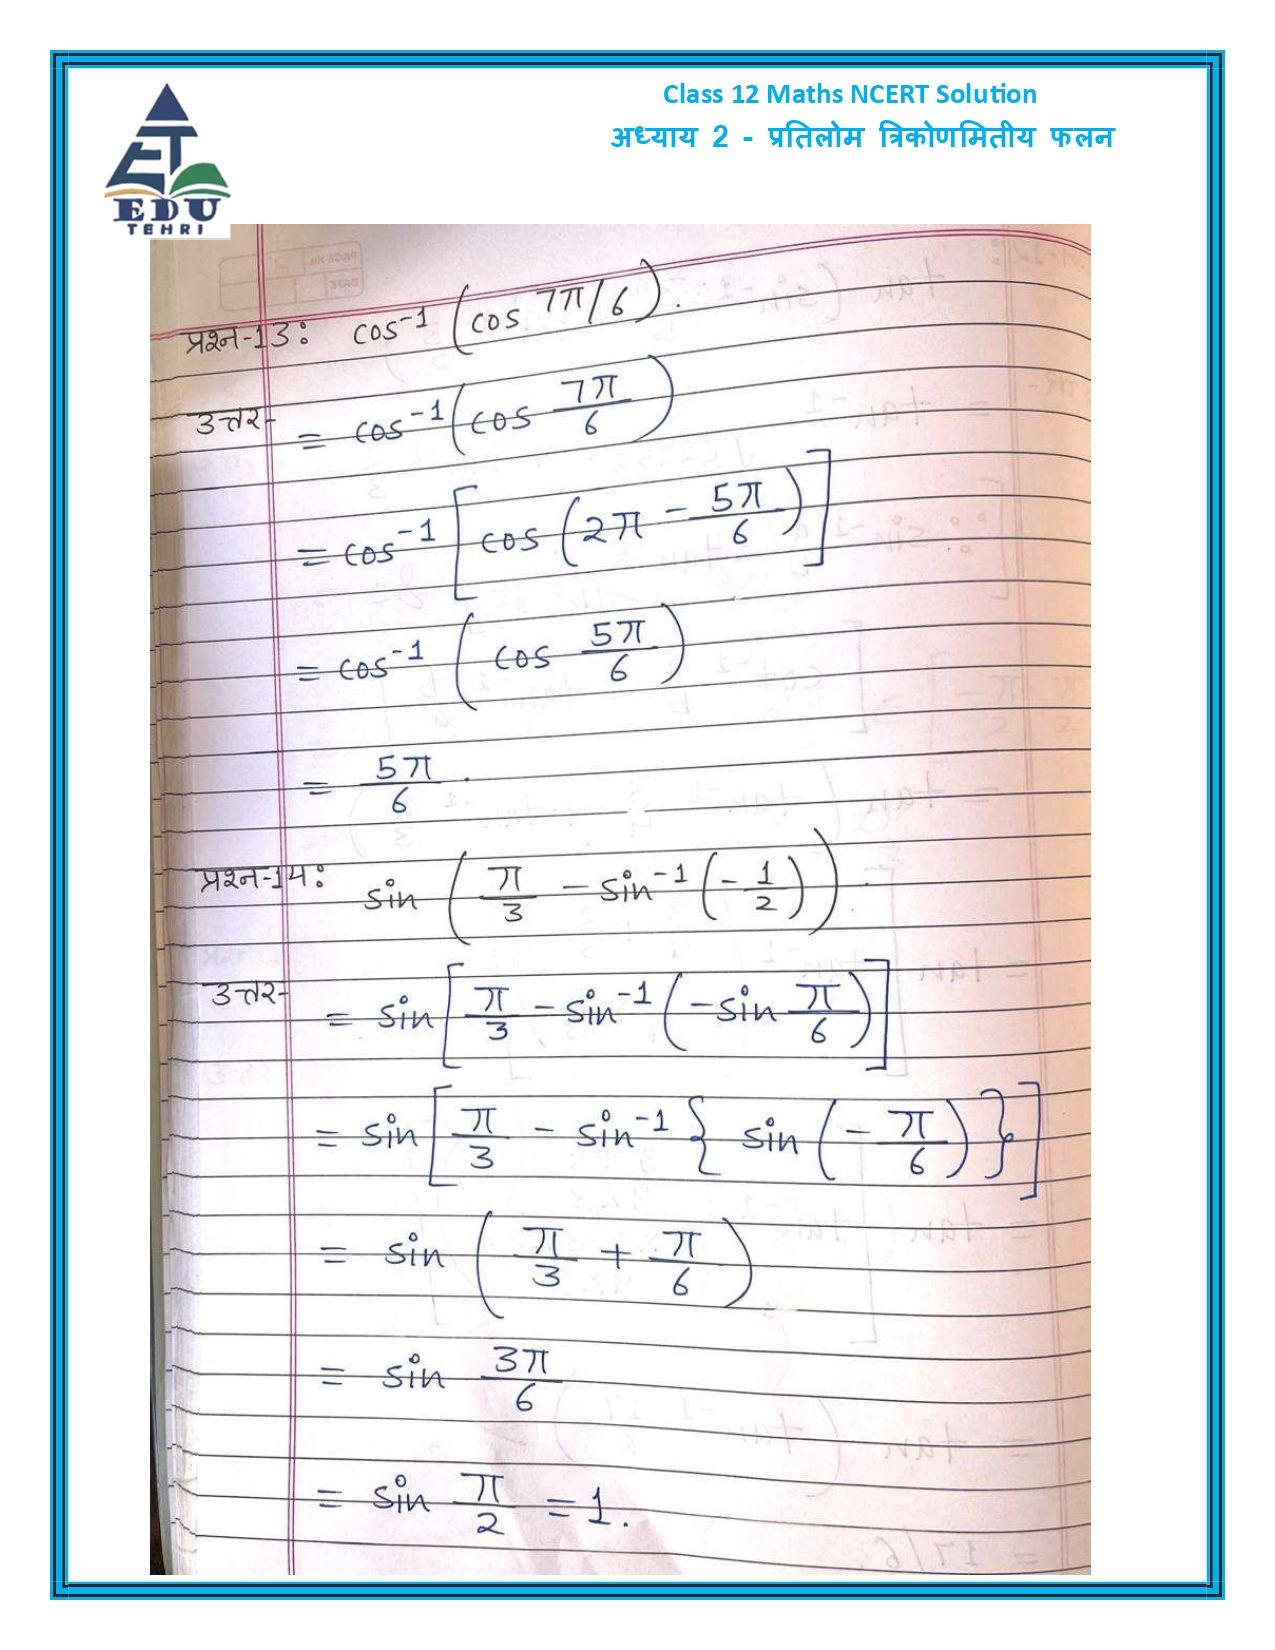 Class 12 Maths NCERT Solution
अध्याय 2 - प्रतिलोम त्रिकोणमितीय फलन
EDU
TEHRI
प्रश्न-13: cos⁻¹ (cos 7π/6).
उत्तर- = cos⁻¹(cos 7π/6)
= cos⁻¹[cos(2π - 5π/6)]
= cos⁻¹(cos 5π/6)
= 5π/6.
प्रश्न-14: sin(π/3 - sin⁻¹(-1/2)).
उत्तर- = sin[π/3 - sin⁻¹(-sin π/6)]
= sin[π/3 - sin⁻¹{sin(-π/6)}]
= sin(π/3 + π/6)
= sin 3π/6
= sin π/2 = 1.